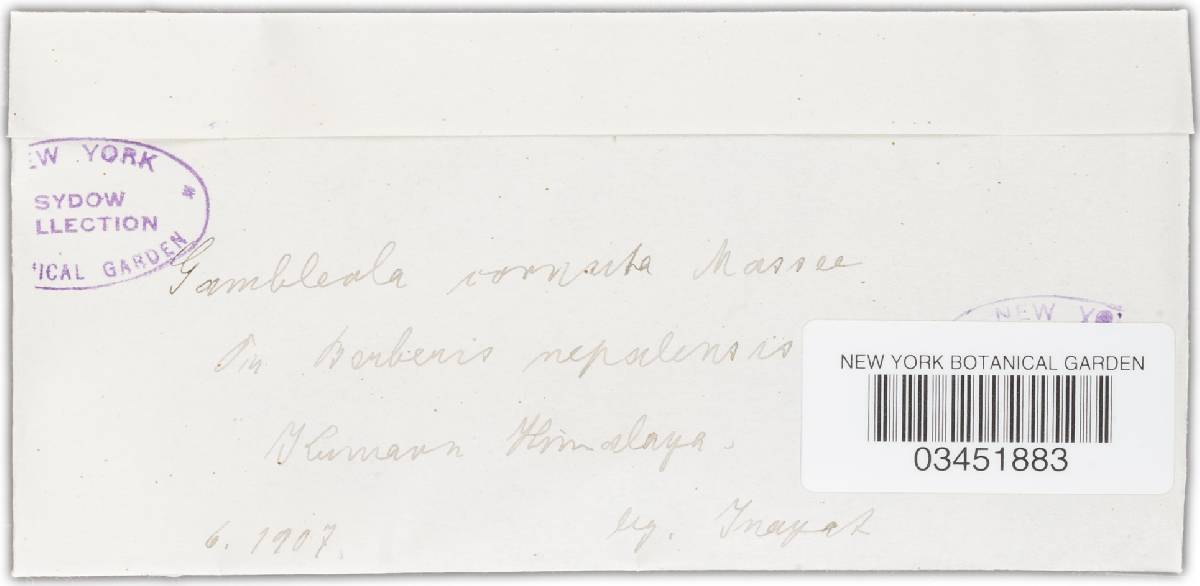 EW YORK
SYDOW
LLECTION
ICAL GARDEN
Gambleola cornuta Massee
On Berberis nepalensis
Kumaon Himalaya.
6. 1907.
leg. Inayat
NEW YO
NEW YORK BOTANICAL GARDEN
03451883